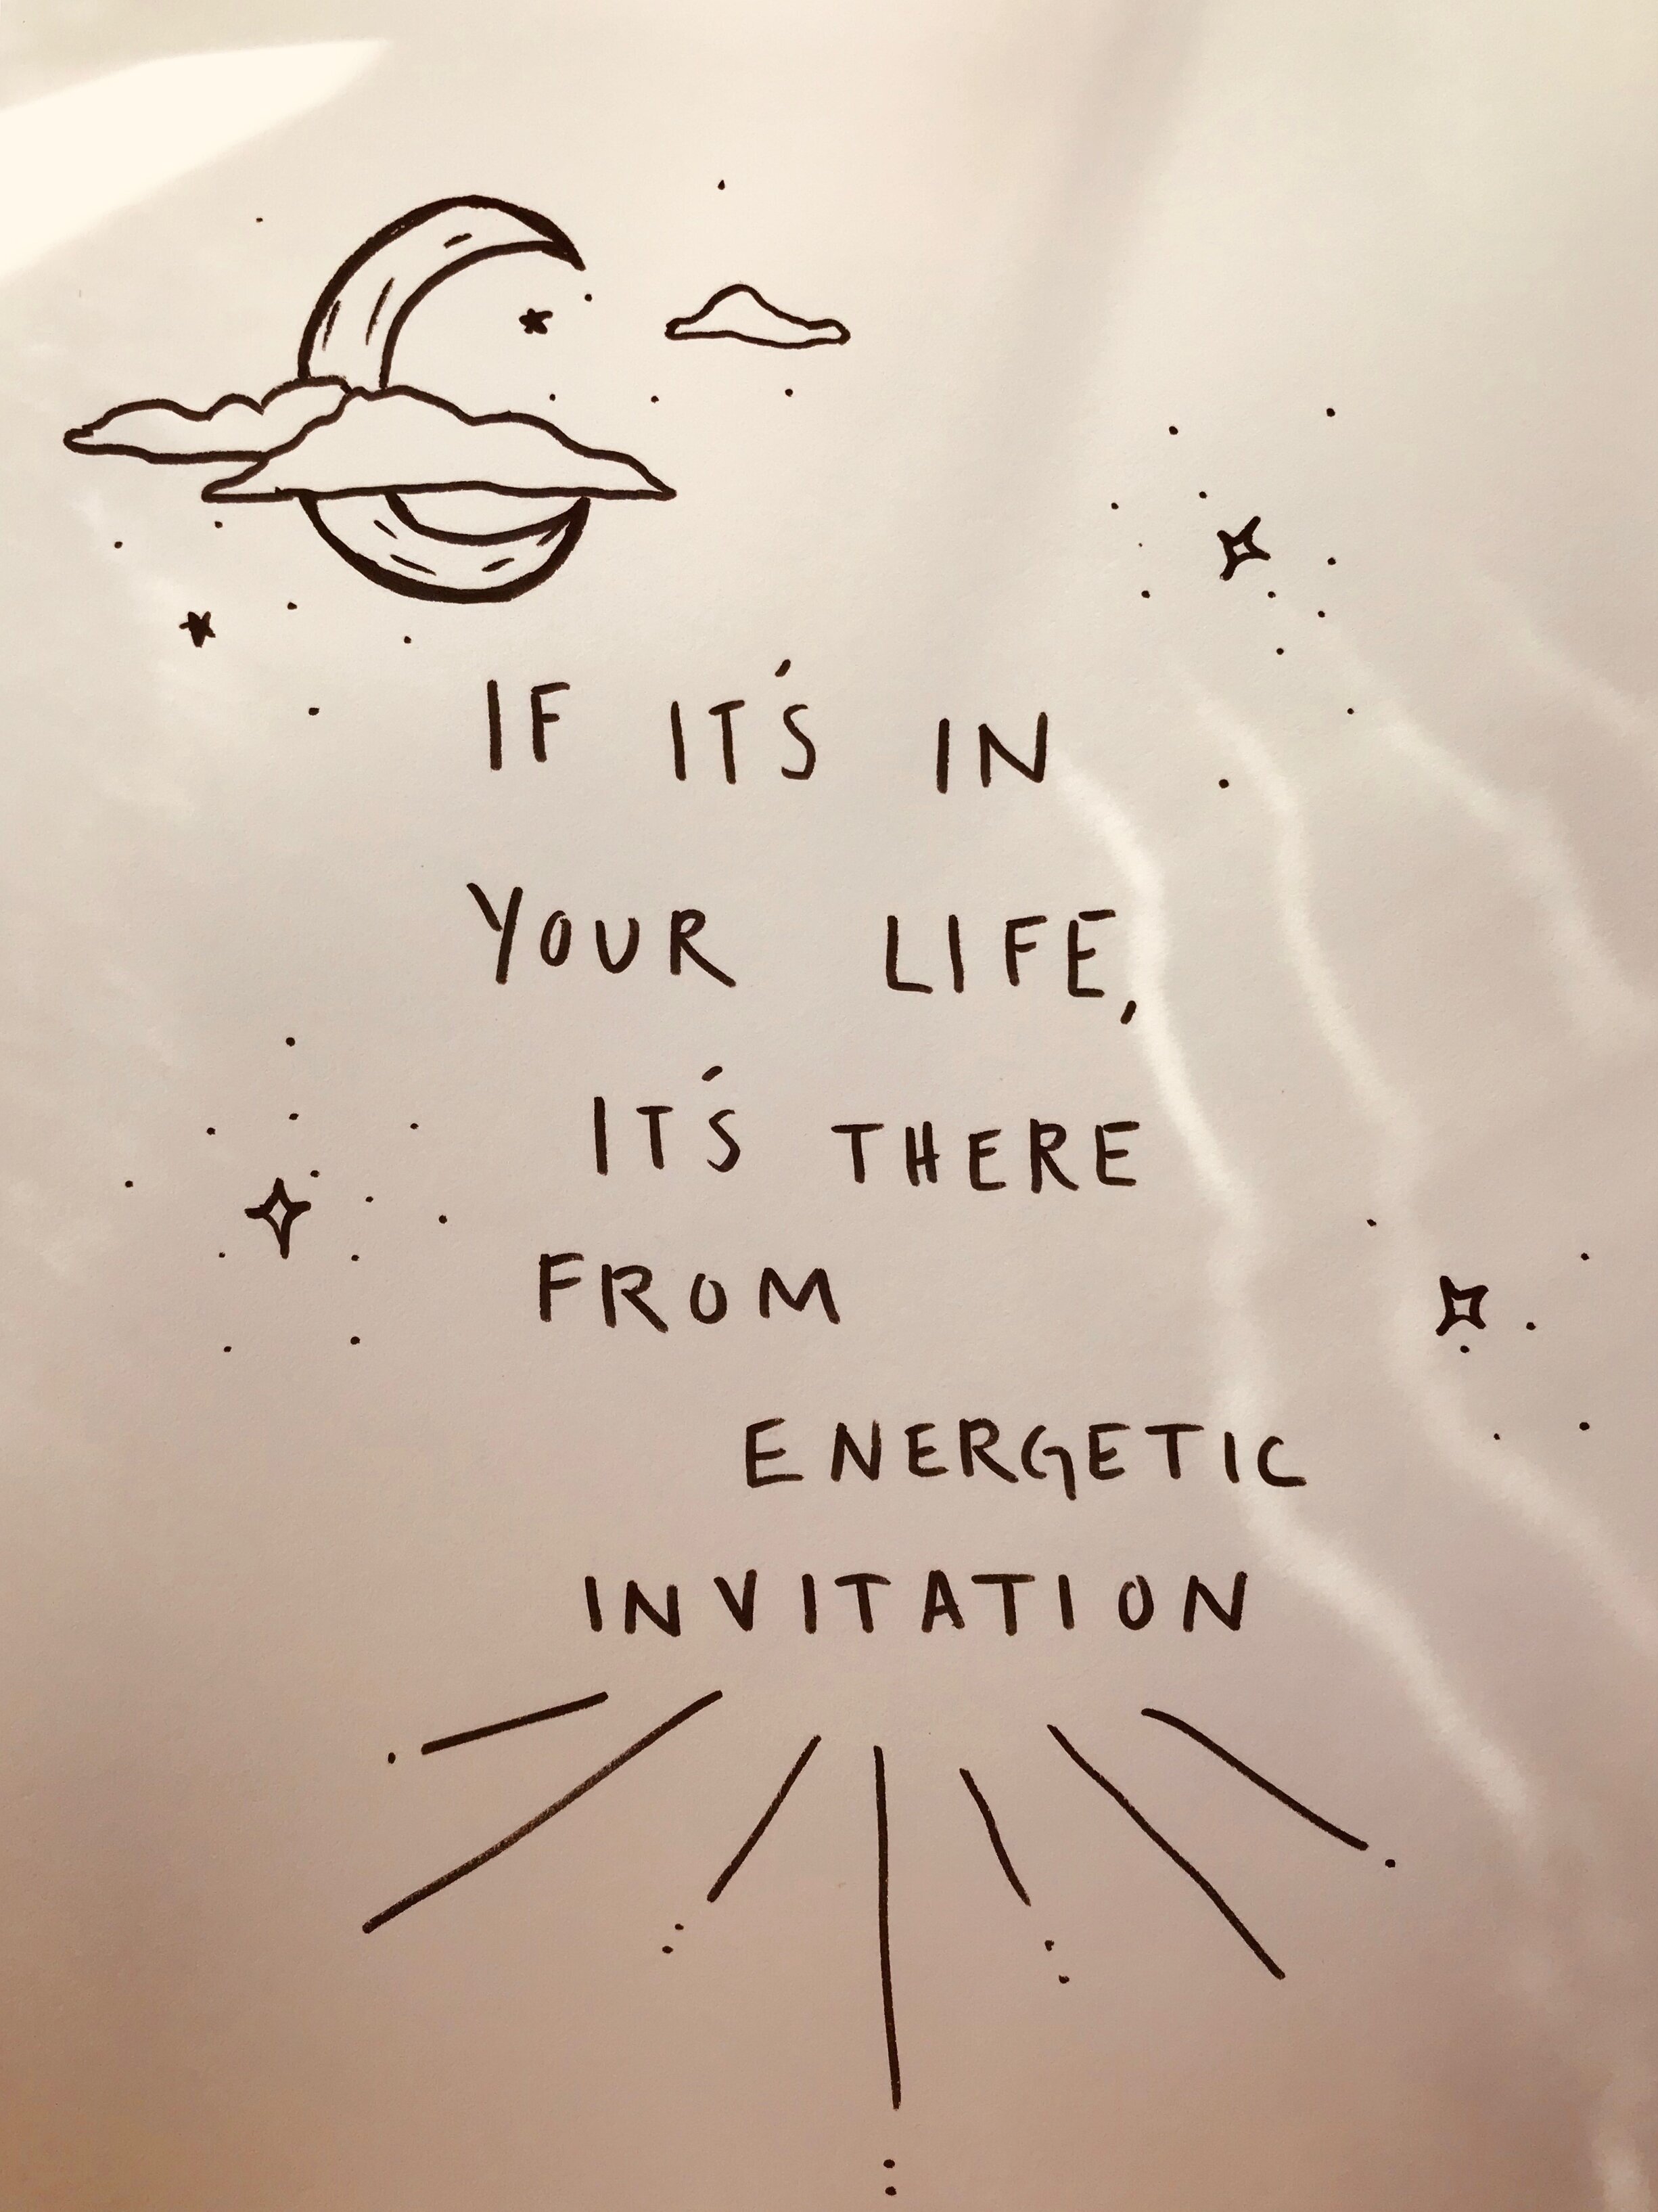 IF IT'S IN
YOUR LIFE,
IT'S THERE
FROM
ENERGETIC
INVITATION